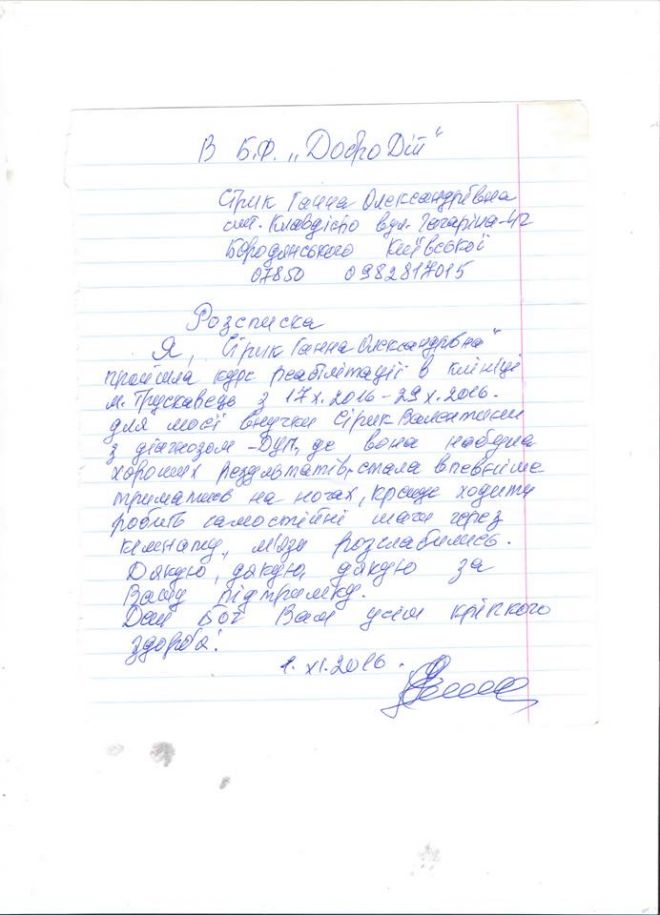 В Б.Ф. „ДоброДій"
Сірик Ганна Олександрівна
смт. Клавдієво вул. Гагаріна-42
Бородянського Київської
07850 0982817015
Розсписка
Я, Сірик Ганна Олександрівна"
пройшла курс реабілітації в клініці
м. Трускавець з 17 х. 2016 - 29 х. 2016.
для моєї внучки Сірик Валентини
з діагнозом - ДЦП, де вона набула
хороших результатів, стала впевніше
триматись на ногах, краще ходити
робить самостійні шаги через
кімнату, м'язи розслабились.
Дякую, дякую, дякую за
Вашу підтримку.
Дай Бог Вам усім кріпкого
здоров'я!
1. XI. 2016.